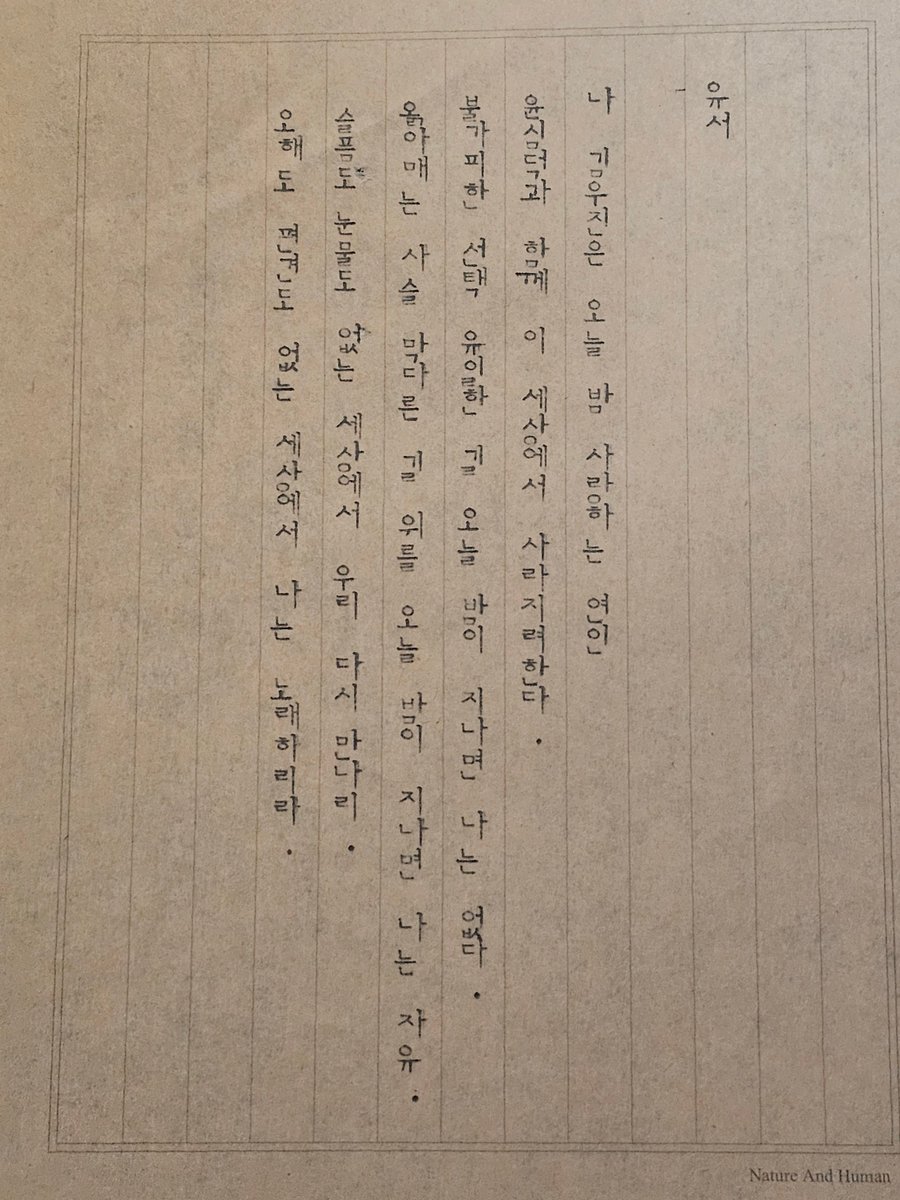 유서
나 김우진은 오늘 밤 사랑하는 연인
윤심덕과 함께 이 세상에서 사라지려한다.
불가피한 선택 유일한 길 오늘 밤이 지나면 나는 없다.
옭아매는 사슬 막다른 길 위를 오늘 밤이 지나면 나는 자유.
슬픔도 눈물도 없는 세상에서 우리 다시 만나리.
오해도 편견도 없는 세상에서 나는 노래하리라.
Nature And Human